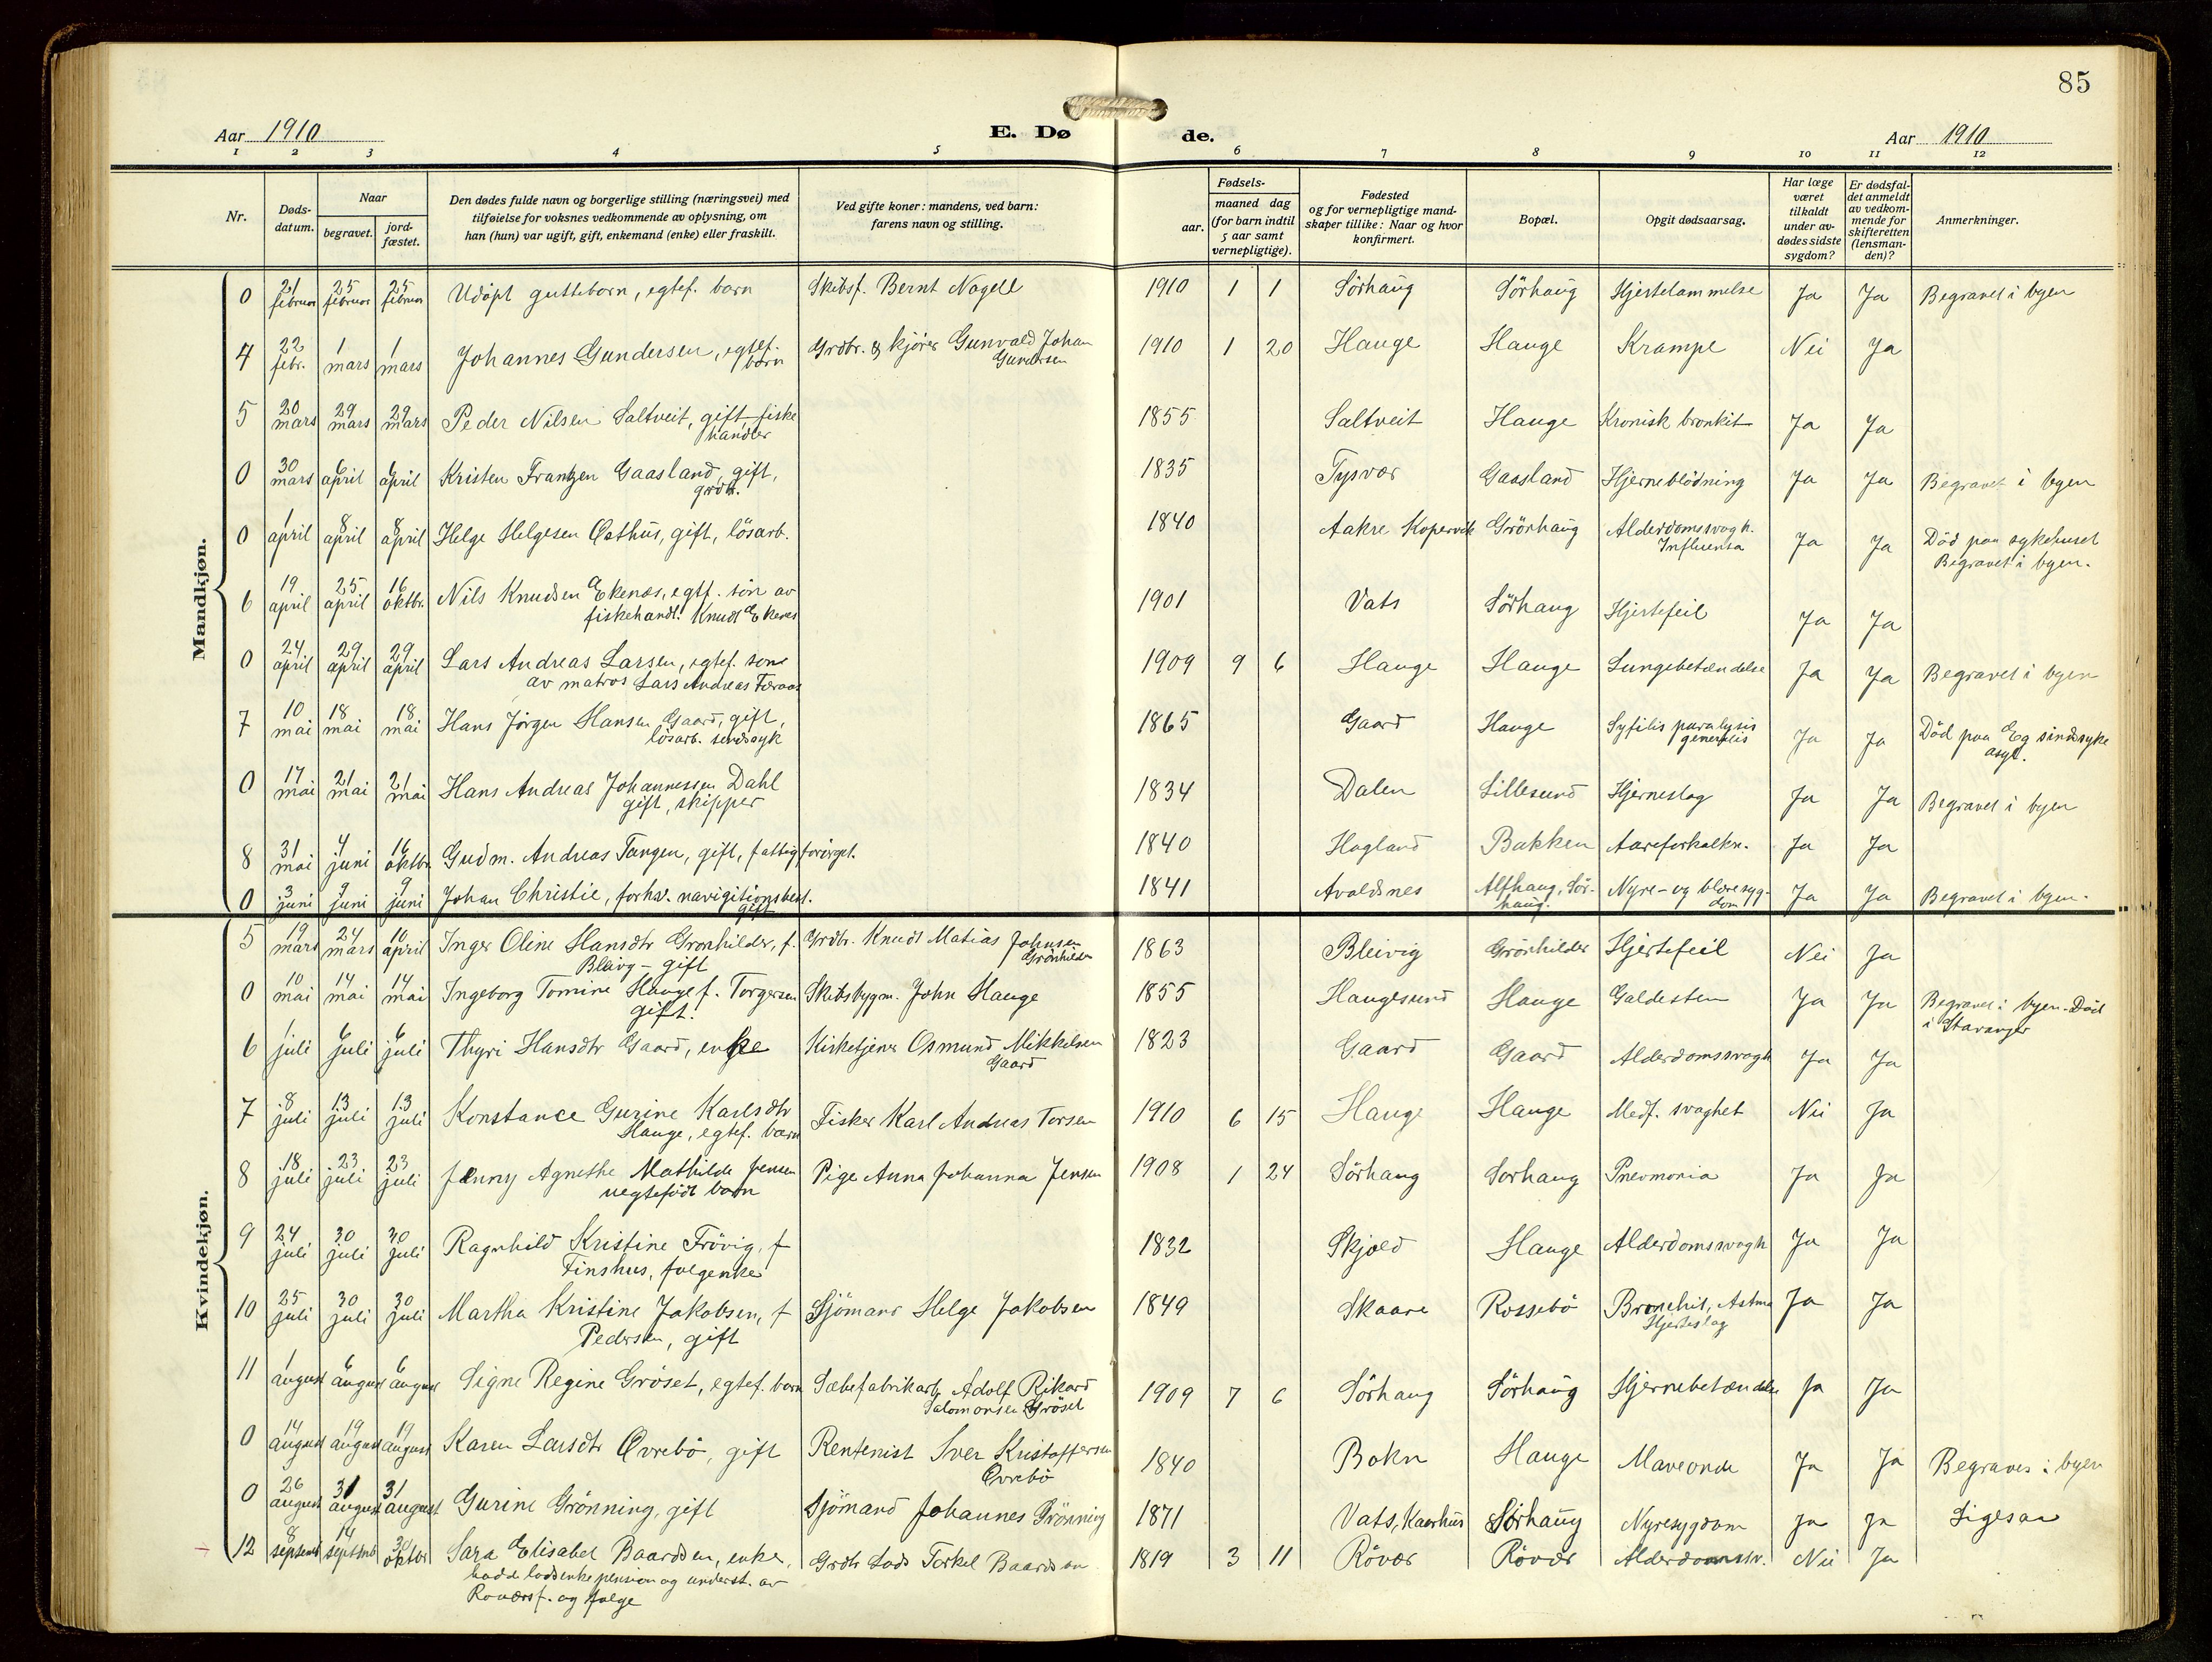 85
Aar 1910
E. Dø de.
Aar 1910
1 2 3 4 5 6 7 8 9 10 11 12
Nr.
Døds-
datum.
Naar
begravet.
jord-
fæstet.
Den dødes fulde navn og borgerlige stilling (næringsvei) med
tilføielse for voksnes vedkommende av oplysning, om
han (hun) var ugift, gift, enkemand (enke) eller fraskilt.
Ved gifte koner: mandens, ved barn:
farens navn og stilling.
Fødsels-
aar.
maaned dag
(for barn indtil
5 aar samt
vernepligtige).
Fødested
og for vernepligtige mand-
skaper tillike: Naar og hvor
konfirmert.
Bopæl.
Opgit dødsaarsag.
Har læge
været
tilkaldt
under av-
dødes sidste
sygdom?
Er dødsfal-
det anmeldt
av vedkom-
mende for
skifteretten
(lensman-
den)?
Anmerkninger.
Mandkjøn.
0 21 februar 25 februar 25 februar Udöpt guttebarn, egtef. barn Skibsf. Bernt Nagell 1910 1 1 Sörhaug Sörhaug Hjertelammelse Ja Ja Begravet i byen
4 22 febr. 1 mars 1 mars Johannes Gundersen, egtef. Grdbr. & kjörer Gunvald Johan 1910 1 20 Hauge Hauge Krampe Nei Ja
barn Gundersen
5 20 mars 29 mars 29 mars Peder Nilsen Saltveit, gift, fiske 1855 Saltveit Hauge Kronisk bronkit Ja Ja
handler
0 30 mars 6 april 6 april Kristen Frantzen Gaasland, gift, 1835 Tysvær Gaasland Hjerneblödning Ja Ja Begravet i byen
grdb.
0 1 april 8 april 8 april Helge Helgesen Østhus, gift, lösarb. 1840 Aakre Kopervik Grörhaug Alderdomssvagh. Ja Ja Död paa sykehuset
Influensa Begravet i byen.
6 19 april 25 april 16 oktbr. Nils Knudsen Ekenæs, egtf. sön av 1901 Vats Sörhaug Hjertefeil Ja Ja
fiskehandl. Knudt Ekenes
0 24 april 29 april 29 april Lars Andreas Larsen, egtef. sön 1909 9 6 Hauge Hauge Lungebetændelse Ja Ja Begravet i byen
av matros Lars Andreas Færaas
7 10 mai 18 mai 18 mai Hans Jörgen Hansen Gaard, gift, 1865 Gaard Hauge Syfilis paralysis Ja Ja Död paa Eg sindssyke
lösarb. sindssyk generalis asyl.
0 17 mai 21 mai 21 mai Hans Andreas Johannessen Dahl 1834 Dalen Lillesund Hjerneslag Ja Ja Begravet i byen
gift, skipper
8 31 mai 4 juni 16 oktbr. Gudm. Andreas Tangen, gift, fattigforsörget. 1840 Hagland Bakken Aareforkalkn. Ja Ja
0 3 juni 9 juni 9 juni Johan Christie, forhv. navigitionsbest. 1841 Avaldsnes Alfhaug, Sör- Nyre- og blæresyg- Ja Ja Begravet i byen.
gift haug. dom
Kvindekjøn.
5 19 mars 24 mars 10 april Inger Oline Hansdtr Grönhilder, f. Grdbr. Knudt Matias Johnsen 1863 Bleivig Grönhilder Hjertefeil Nei Ja
Bleivig - gift Grönhilder
0 10 mai 14 mai 14 mai Ingeborg Tomine Hauge f. Torgersen Skibsbygm. John Hauge 1855 Haugesund Hauge Galdesten Ja Ja Begravet i byen - Död
gift. i Stavanger
6 1 juli 6 juli 6 juli Thyri Hansdtr Gaard, enke Kirketjener Osmund Mikkelsen 1823 Gaard Gaard Alderdomssvagh Ja Ja
Gaard
7 8 juli 13 juli 13 juli Konstance Gurine Karlsdtr Fisker Karl Andreas Torsen 1910 6 15 Hauge Hauge Medf. svaghet Nei Ja
Hauge, egtef. barn
8 18 juli 23 juli 23 juli Jenny Agnethe Mathilde Jensen Pige Anna Johanna Jensen 1908 1 24 Sörhaug Sorhaug Pneomonia Ja Ja
uegtefödt barn
9 24 juli 30 juli 30 juli Ragnhild Kristine Frövig, f 1832 Skjold Hauge Alderdomssvagh Ja Ja
Finshus, folgenke
10 25 juli 30 juli 30 juli Martha Kristine Jakobsen, f Sjömand Helge Jakobsen 1849 Skaare Rossebö Bronchit, Astma Ja Ja
Pedersen, gift Hjerteslag
11 1 august 6 august 6 august Signe Regine Gröset, egtef. barn Sæbefabrikarb. Adolf Rikard 1909 7 6 Sörhaug Sörhaug Hjernebetændelse Ja Ja
Salomonsen Gröset
0 14 august 19 august 19 august Karen Larsdtr Øvrebö, gift Rentenist Iver Kristoffersen 1840 Bokn Hauge Maveonde Ja Ja Begraves i byen
Øvrebö
0 26 august 31 august 31 august Gurine Grönning, gift Sjömand Johannes Grönning 1871 Vats, Kaarhus Sörhaug Nyresygdom Ja Ja Ligesaa
12 8 septemb 14 septemb 30 oktbr Sara Elisabet Baardsen, enke, Grdbr Lods Torkel Baardsen 1819 3 11 Rövær Rövær Alderdomssv. Nei Ja
hadde lodsenkepension og underst. av
Roværsf. og folge